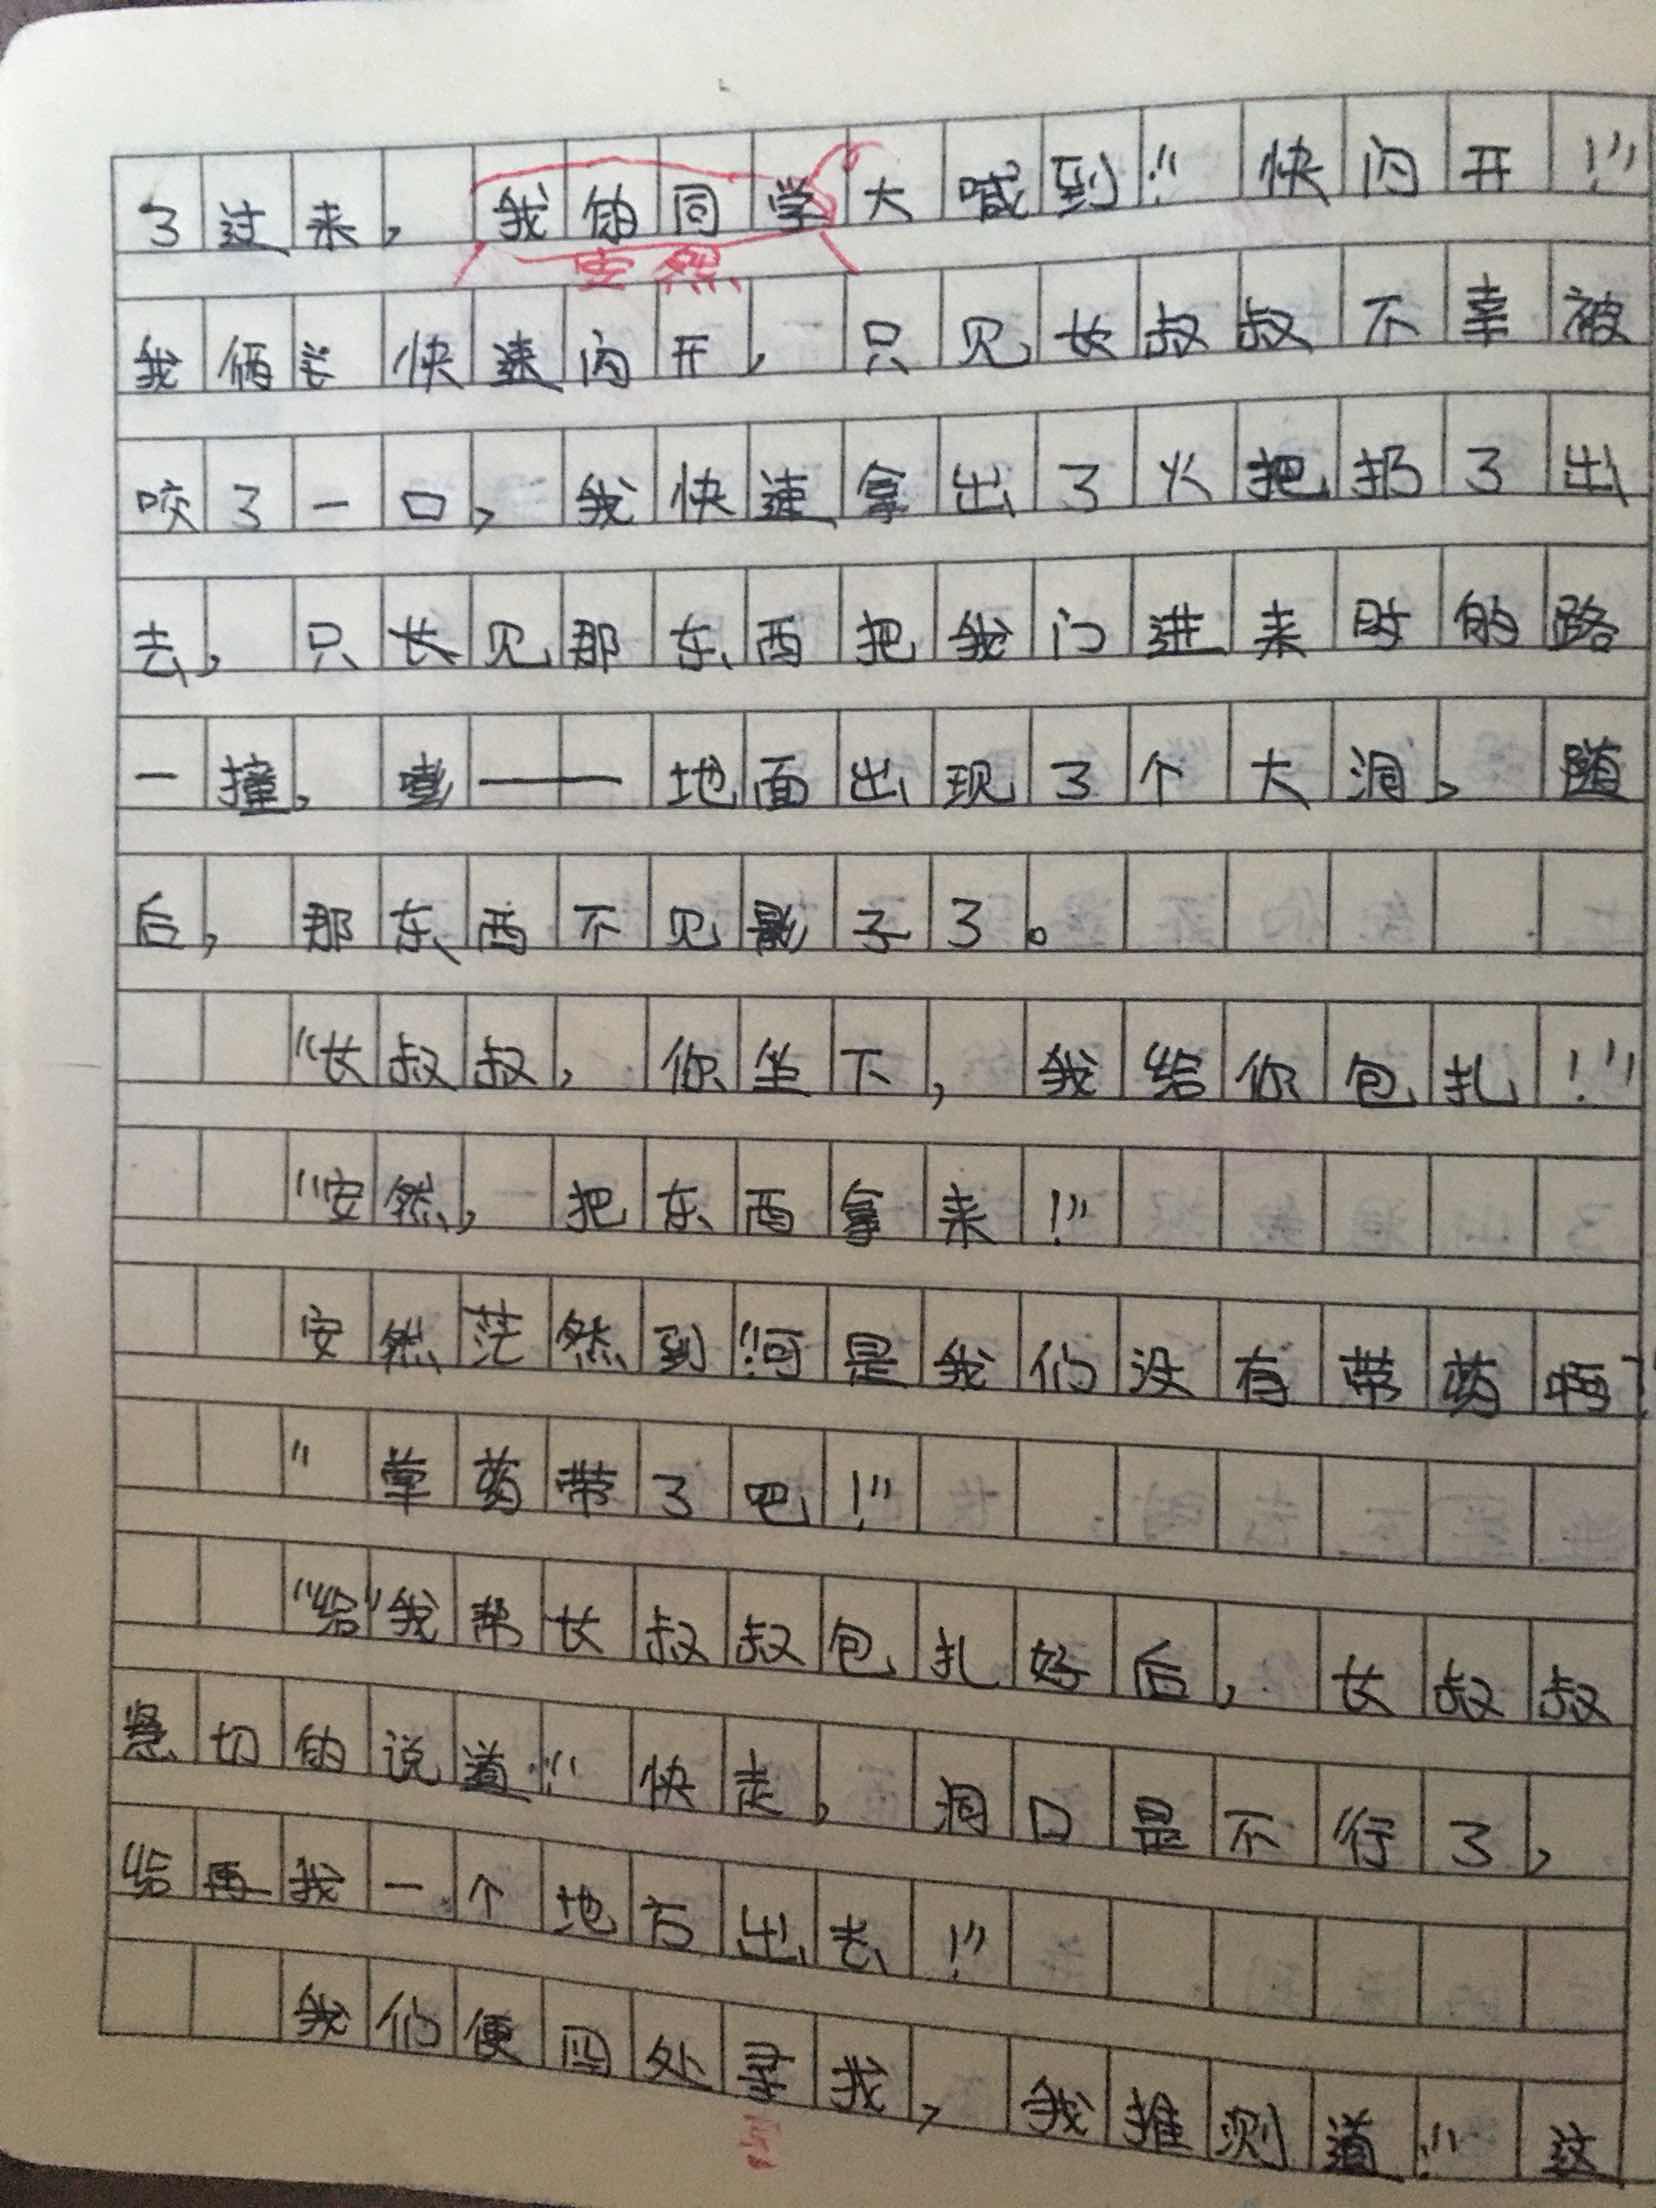 了过来，我的同学大喊到：“快闪开！”
安然
我俩 快速闪开，只见女叔叔不幸被
咬了一口，我快速拿出了火把扔了出
去，只长见那东西把我门进来时的路
一撞，嘭——地面出现了个大洞，随
后，那东西不见影子了。
“女叔叔，你坐下，我给你包扎！”
“安然，把东西拿来！”
安然茫然到：“可是我们没有带药啊！”
“草药带了吧！”
“给”我帮女叔叔包扎好后，女叔叔
急切的说道：“快走，洞口是不行了，
给再我一个地方出去！”
我们便四处寻找，我推测道：“这
寻